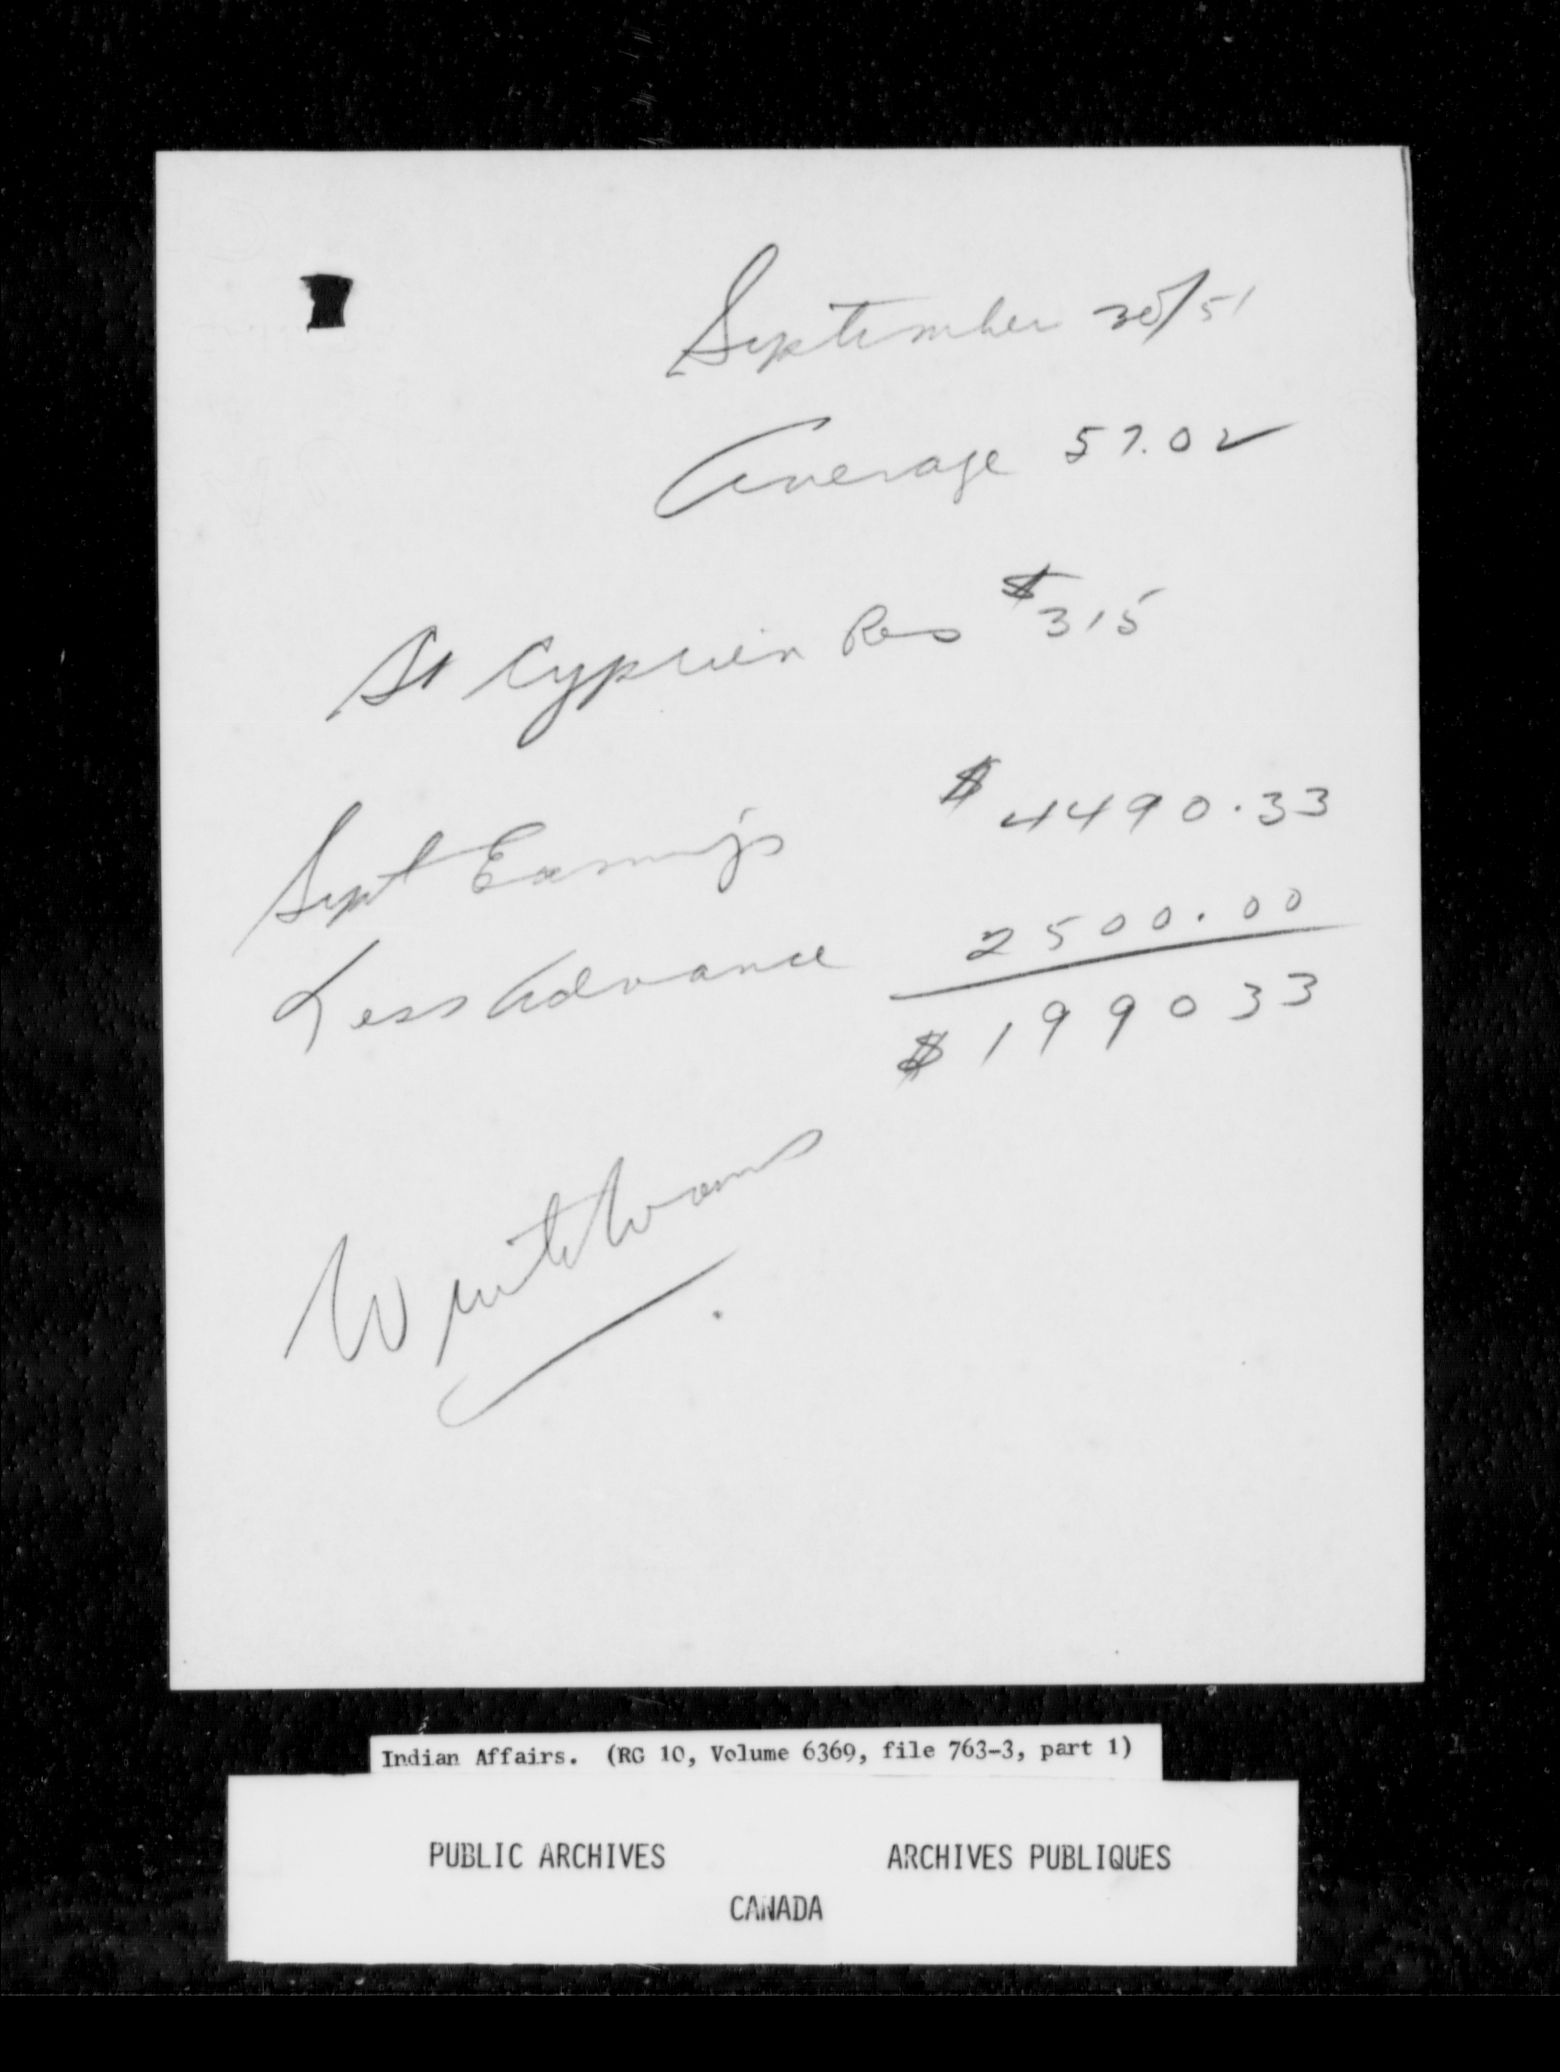 September 30/51
Average 57.02
St Cyprien Res $315
Sept Earnings $4490.33
Less Advance 2500.00
$199033
Indian Affairs. (RG 10, Volume 6369, file 763-3, part 1)
PUBLIC ARCHIVES ARCHIVES PUBLIQUES
CANADA